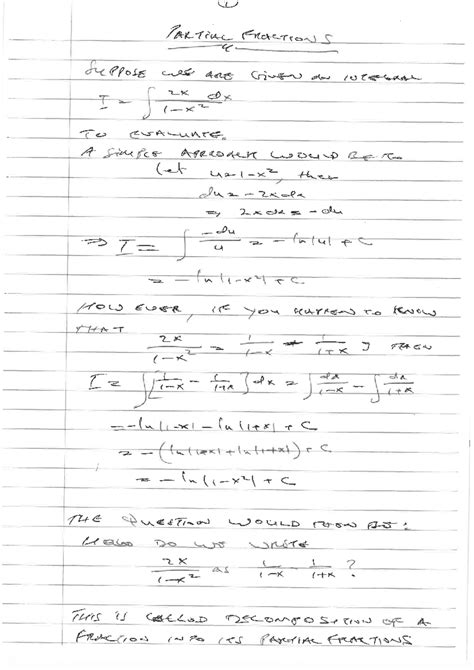 1
PARTIAL FRACTIONS
SUPPOSE WE ARE GIVEN AN INTEGRAL
I = ∫ 2x dx / (1-x²)
TO EVALUATE.
A SIMPLE APPROACH WOULD BE TO
let u=1-x², then
du = -2xdx
⇒ 2xdx = -du
⇒ I = ∫ -du/u = -ln|u| + C
= -ln|1-x²| + C
HOWEVER, IF YOU HAPPEN TO KNOW
THAT
2x/(1-x²) = 1/(1-x) - 1/(1+x) ; THEN
I = ∫[1/(1-x) - 1/(1+x)]dx = ∫dx/(1-x) - ∫dx/(1+x)
= -ln|1-x| - ln|1+x| + C
= -(ln|1-x| + ln|1+x|) + C
= -ln|1-x²| + C
THE QUESTION WOULD THEN BE:
HOW DO WE WRITE
2x/(1-x²) as 1/(1-x) - 1/(1+x) ?
THIS IS CALLED DECOMPOSITION OF A
FRACTION INTO ITS PARTIAL FRACTIONS